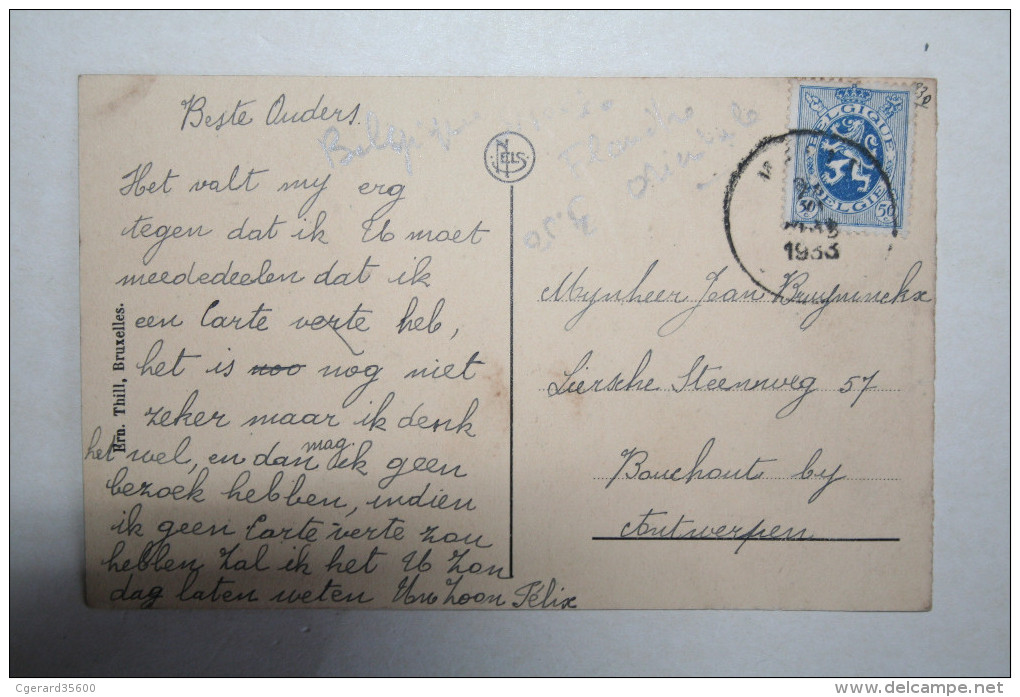 Beste Ouders.
Het valt my erg
tegen dat ik U moet
meededeelen dat ik
een Carte verte heb,
het is noo nog niet
zeker maar ik denk
het wel, en dan mag ik geen
bezoek hebben, indien
ik geen Carte-verte zou
hebben zal ik het U Zon
dag laten weten Uw Zoon Félix
Ern. Thill, Bruxelles.
NELS
3.50
BELGIQUE
BELGIE
50
30
1933
Mynheer Jean Bruyninckx
Liersche Steenweg 57
Bouchout by
Antwerpen
Cgerard35600
www.delcampe.net